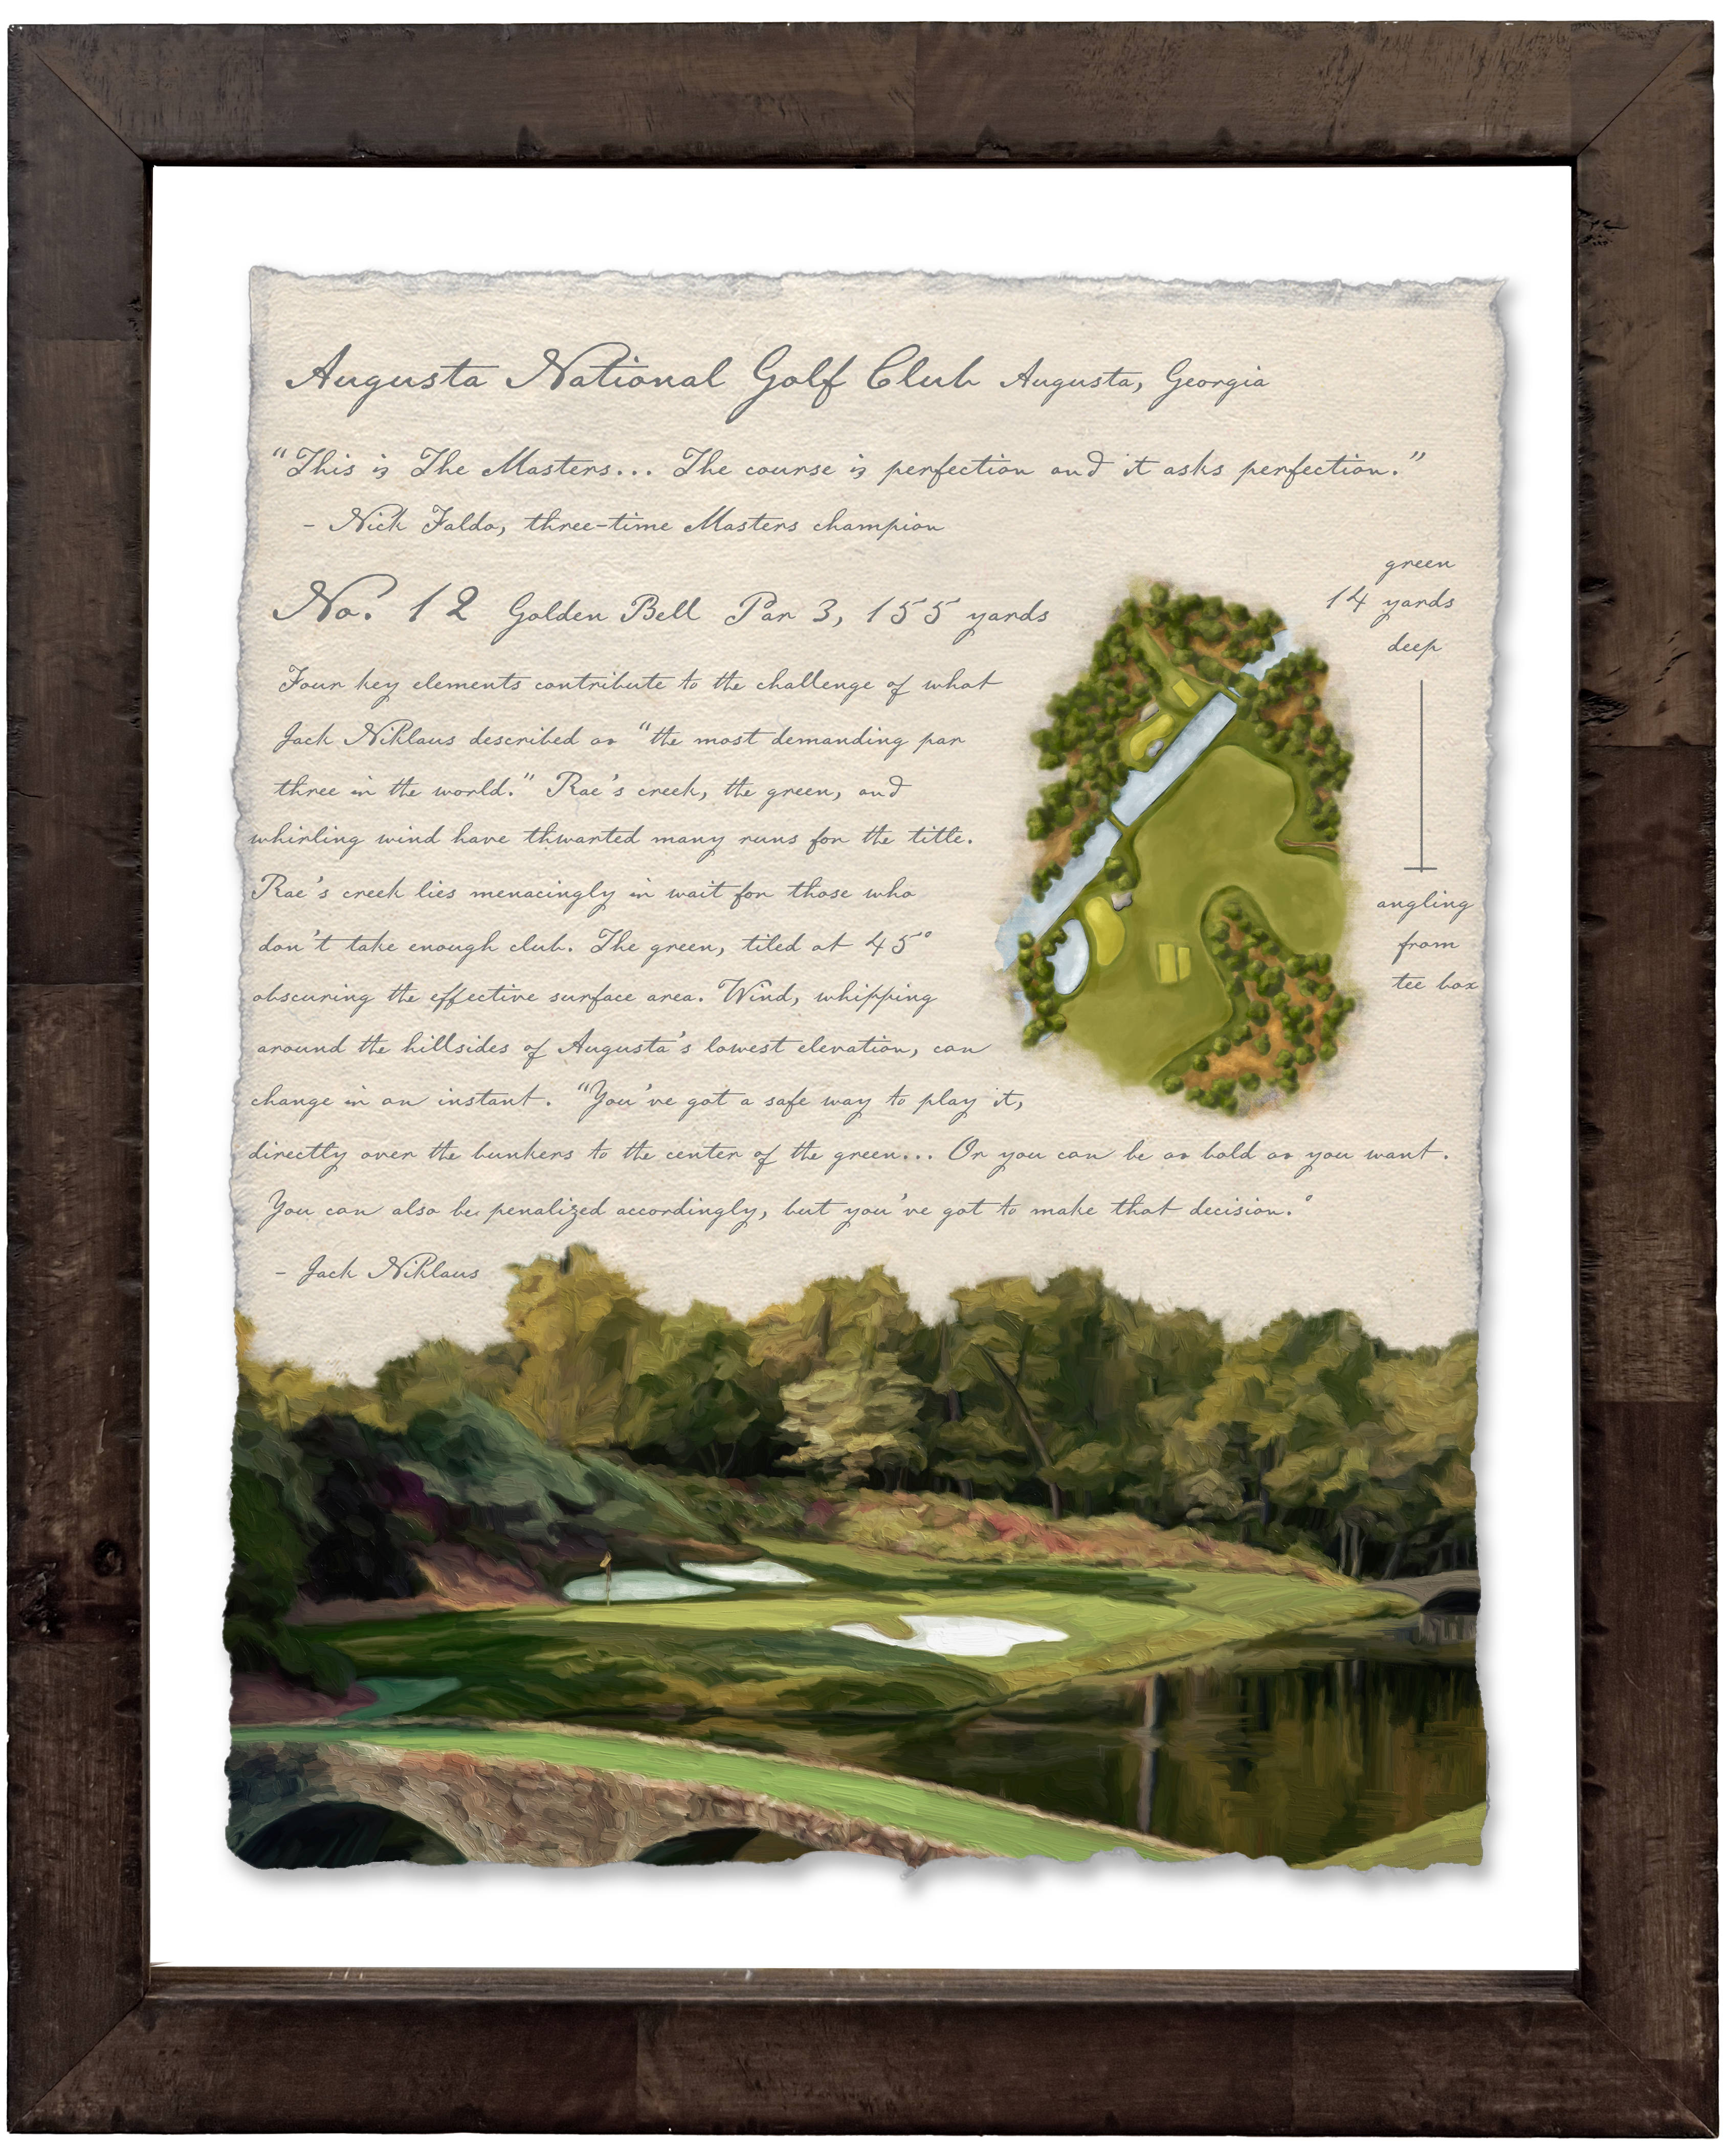 Augusta National Golf Club Augusta, Georgia
“This is The Masters... The course is perfection and it asks perfection.”
- Nick Faldo, three-time Masters champion
No. 12 Golden Bell Par 3, 155 yards
green
14 yards
deep
angling
from
tee box
Four key elements contribute to the challenge of what
Jack Niklaus described as “the most demanding par
three in the world.” Rae’s creek, the green, and
whirling wind have thwarted many runs for the title.
Rae’s creek lies menacingly in wait for those who
don’t take enough club. The green, tiled at 45°
obscuring the effective surface area. Wind, whipping
around the hillsides of Augusta’s lowest elevation, can
change in an instant. “You’ve got a safe way to play it,
directly over the bunkers to the center of the green... Or you can be as bold as you want.
You can also be penalized accordingly, but you’ve got to make that decision.°
- Jack Niklaus